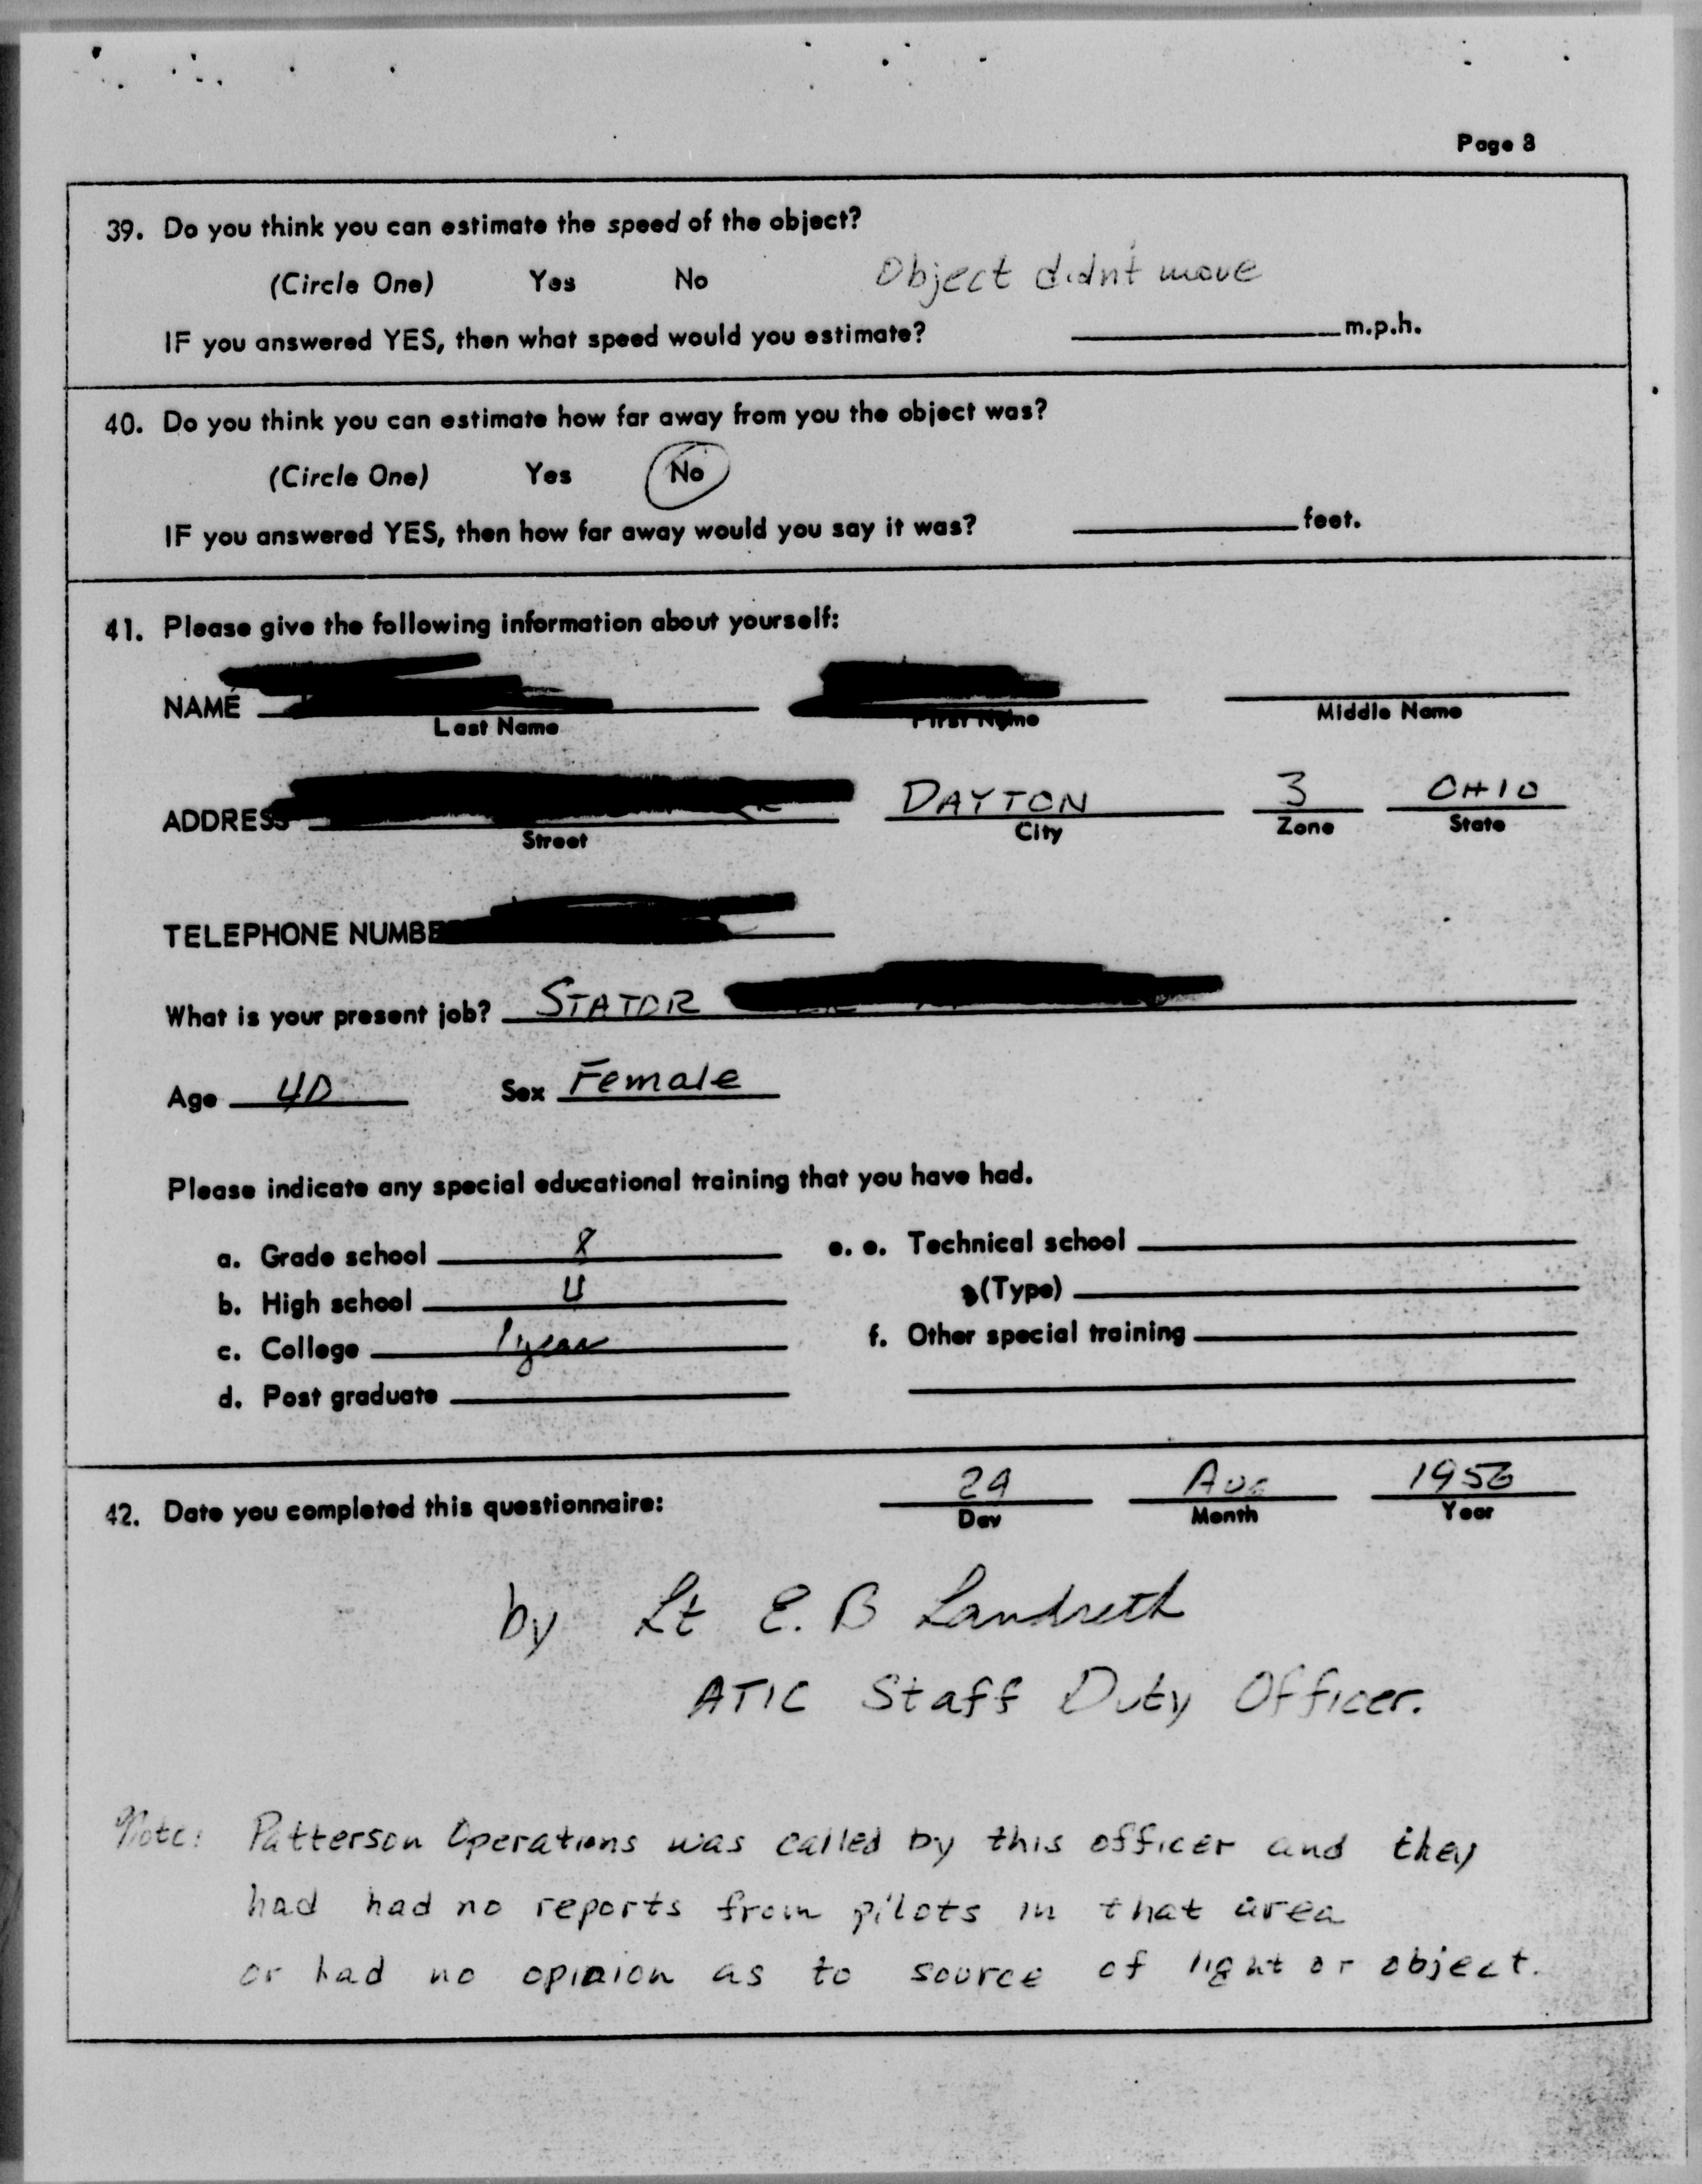 Page 8
39. Do you think you can estimate the speed of the object?
(Circle One) Yes No Object didn't move
IF you answered YES, then what speed would you estimate? m.p.h.
40. Do you think you can estimate how far away from you the object was?
(Circle One) Yes No
IF you answered YES, then how far away would you say it was? feet.
41. Please give the following information about yourself:
NAME
Last Name First Name Middle Name
ADDRESS DAYTON 3 OHIO
Street City Zone State
TELEPHONE
What is your present job? STATOR
Age 40 Sex Female
Please indicate any special educational training that you have had.
a. Grade school 8 e. e. Technical school
b. High school 4 (Type)
c. College 1 year f. Other special training
d. Post graduate
42. Date you completed this questionnaire: 29 AUG 1956
Day Month Year
by Lt E. B Landreth
ATIC Staff Duty Officer.
Note: Patterson Operations was called by this officer and they
had had no reports from pilots in that area
or had no opinion as to source of light or object.